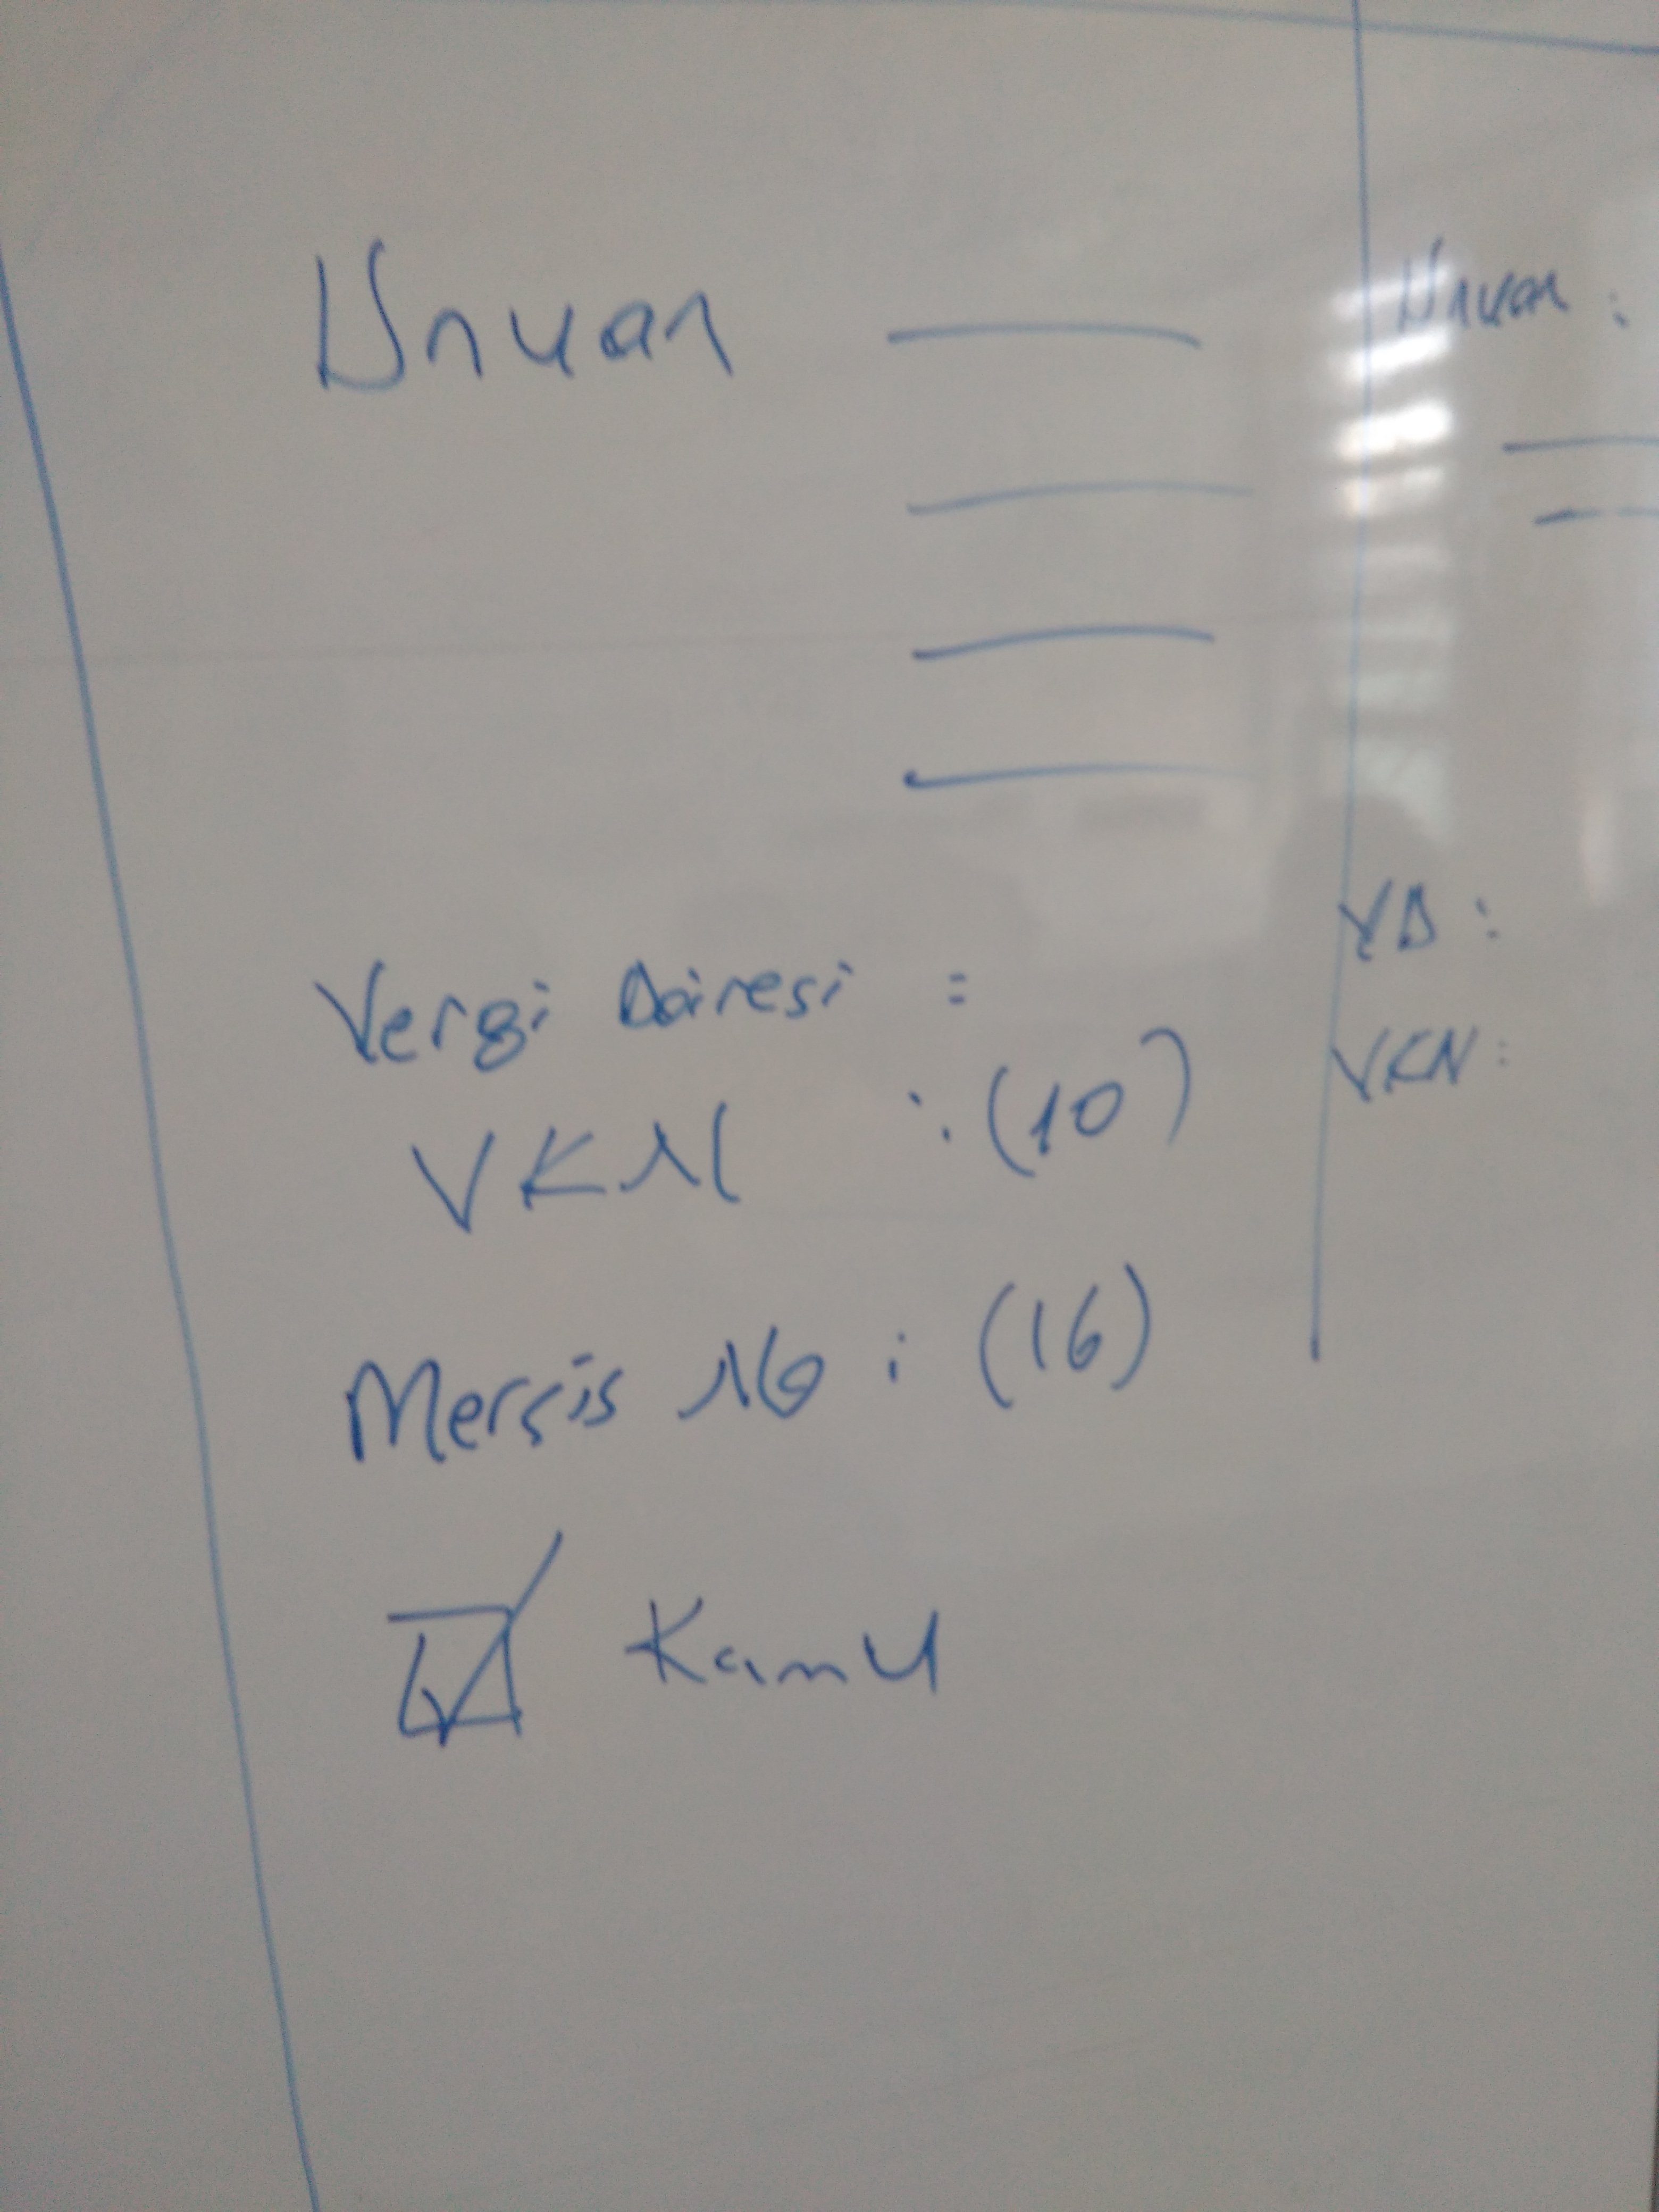 Unvan
Vergi Dairesi :
VKN : (10)
Mersis No : (16)
Kamu
Unvan :
VD :
VKN :